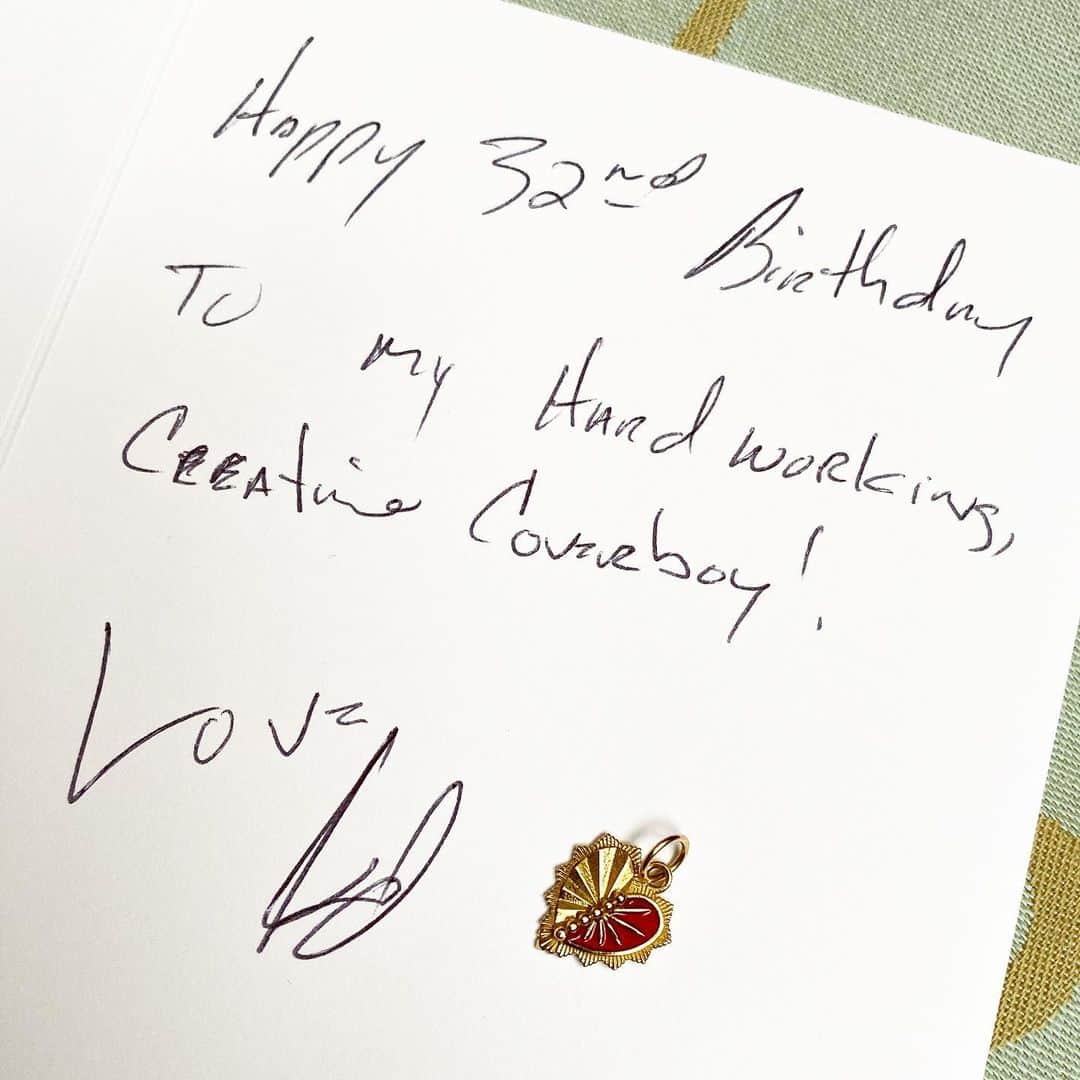 Happy 32nd Birthday
To my Hard working,
Creative Coverboy!
Love